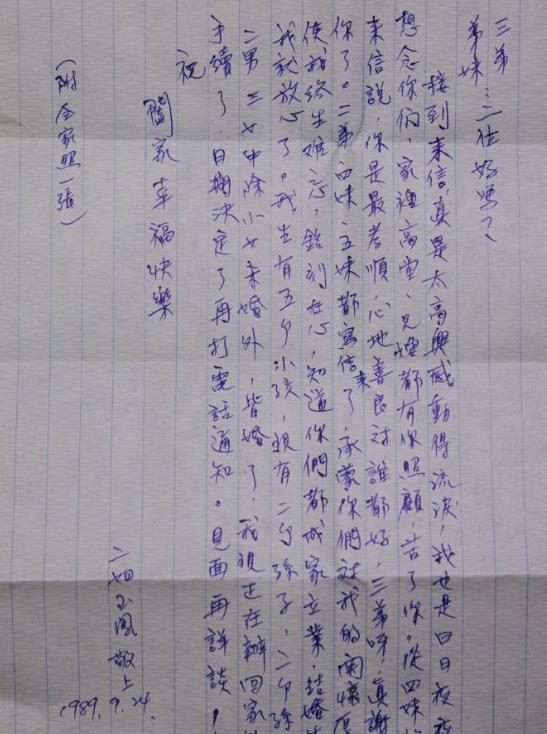 三弟
弟妹：二位好嗎？
接到来信，真是太高興感動得流淚，我也是日日夜夜
想念你们，家裡高堂、兄嫂都有你照顧，苦了你。從四妹
来信説，你是最孝順，心地善良对誰都好，三弟呀，真謝
你了。二弟四妹五妹都寫信来了，承蒙你們对我的関懷
使我终生难忘，銘刻在心，知道你們都成家立業，結婚生
我就放心了。我生有五个小孩，現有二个孫子，二个孫
二男三女中除小女未婚外，皆婚了，我現正在辦回家
手續了，日期决定了再打電話通知。見面再詳談！
祝
闔家幸福快樂
二姐玉鳳敬上
1989.9.24.
（附全家照一張）